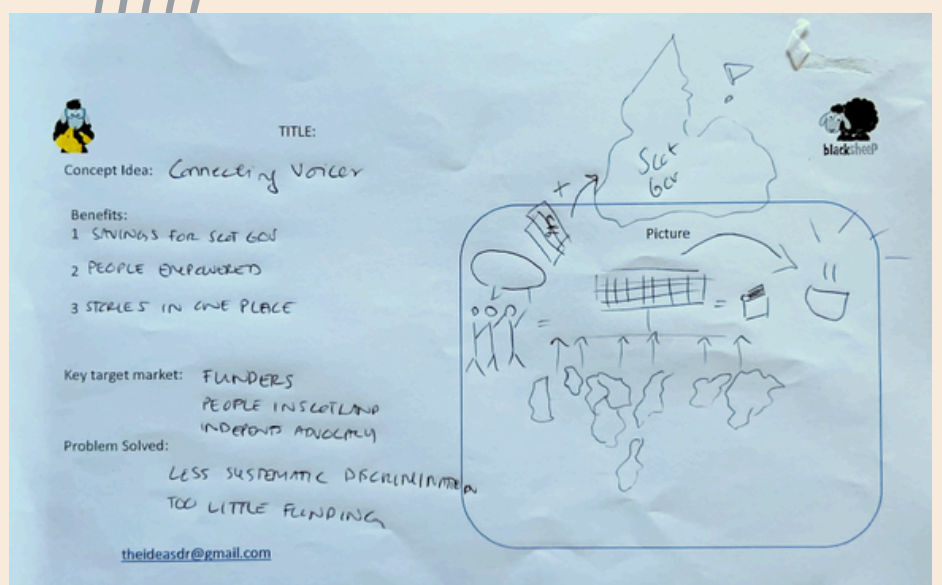 TITLE:
blacksheeP
Concept Idea: Connecting Voices
Benefits:
1 SAVINGS FOR SCOT GOV
2 PEOPLE EMPOWERED
3 STORIES IN ONE PLACE
Key target market: FUNDERS
PEOPLE IN SCOTLAND
INDEPENDT ADVOCACY
Problem Solved:
LESS SYSTEMATIC DISCRIMINATION
TOO LITTLE FUNDING
theideasdr@gmail.com
Scot
Gov
Picture